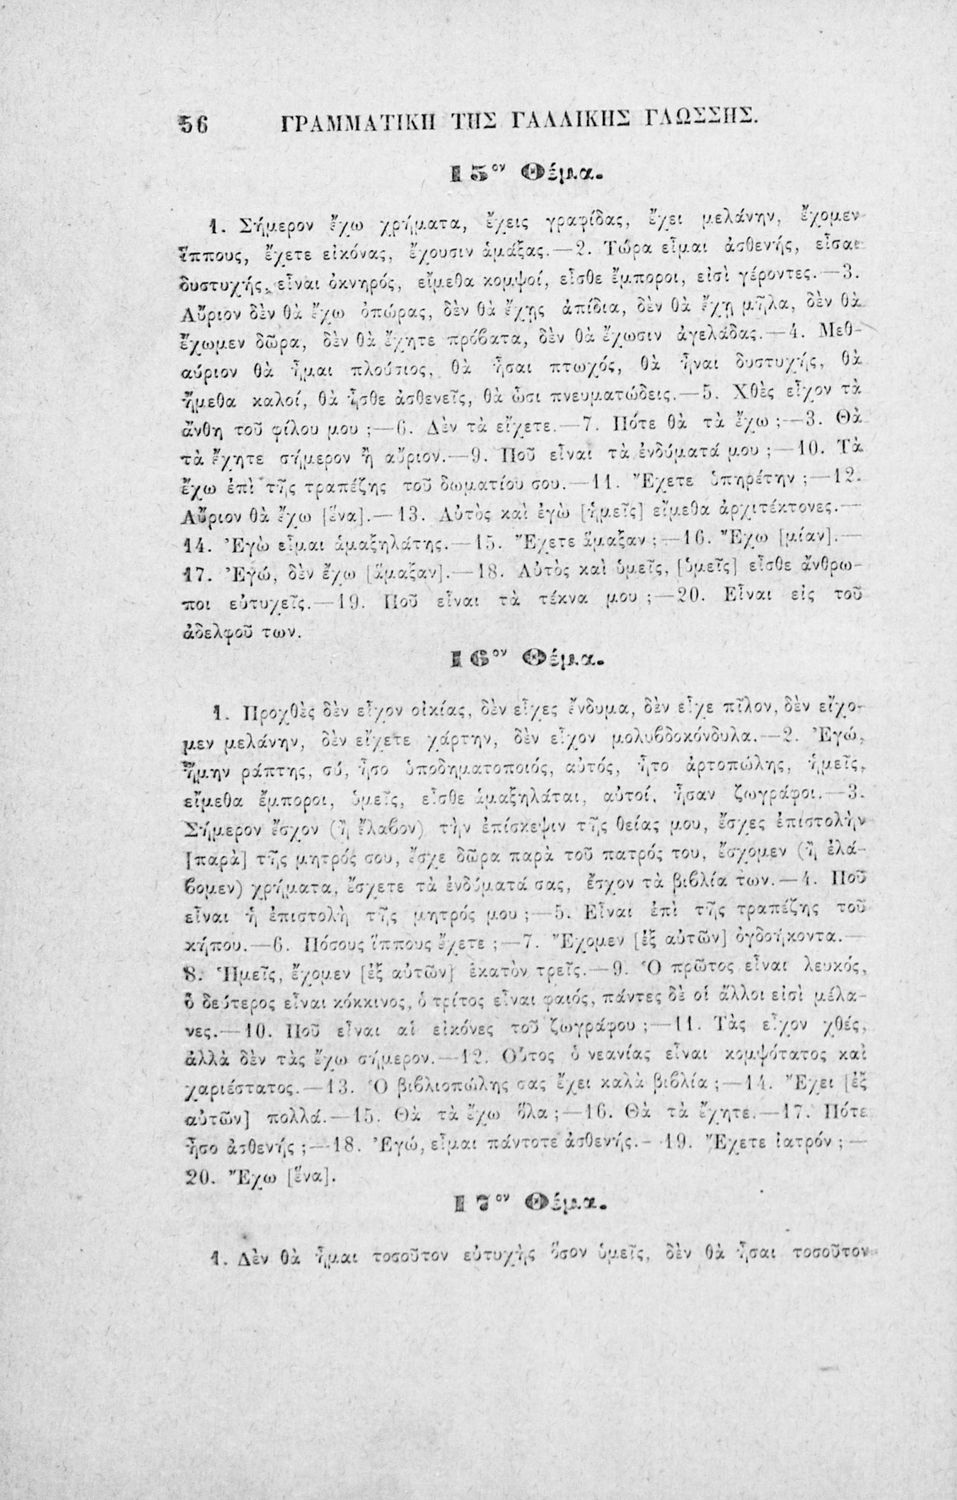 56 ΓΡΑΜΜΑΤΙΚΗ ΤΗΣ ΓΑΛΛΙΚΗΣ ΓΛΩΣΣΗΣ.
15ον Θέμα.
1. Σήμερον ἔχω χρήματα, ἔχεις γραφίδας, ἔχει μελάνην, ἔχομεν
ἵππους, ἔχετε εἰκόνας, ἔχουσιν ἁμάξας.—2. Τώρα εἶμαι ἀσθενής, εἶσαι
δυστυχής, εἶναι ὀκνηρός, εἴμεθα κομψοί, εἶσθε ἔμποροι, εἰσὶ γέροντες.—3.
Αὔριον δὲν θὰ ἔχω ὀπώρας, δὲν θὰ ἔχῃς ἀπίδια, δὲν θὰ ἔχῃ μῆλα, δὲν θὰ
ἔχωμεν δῶρα, δὲν θὰ ἔχητε πρόβατα, δὲν θὰ ἔχωσιν ἀγελάδας.—4. Μεθ-
αύριον θὰ ἦμαι πλούσιος, θὰ ἦσαι πτωχός, θὰ ἦναι δυστυχής, θὰ
ἤμεθα καλοί, θὰ ἦσθε ἀσθενεῖς, θὰ ὦσι πνευματώδεις.—5. Χθὲς εἶχον τὰ
ἄνθη τοῦ φίλου μου ;—6. Δὲν τὰ εἴχετε.—7. Πότε θὰ τὰ ἔχω ;—3. Θὰ
τὰ ἔχητε σήμερον ἢ αὔριον.—9. Ποῦ εἶναι τὰ ἐνδύματά μου ;—10. Τὰ
ἔχω ἐπὶ τῆς τραπέζης τοῦ δωματίου σου.—11. Ἔχετε ὑπηρέτην ;—12.
Αὔριον θὰ ἔχω [ἕνα].—13. Αὐτὸς καὶ ἐγὼ [ἡμεῖς] εἴμεθα ἀρχιτέκτονες.—
14. Ἐγὼ εἶμαι ἁμαξηλάτης.—15. Ἔχετε ἅμαξαν ;—16. Ἔχω [μίαν].—
17. Ἐγώ, δὲν ἔχω [ἅμαξαν].—18. Αὐτὸς καὶ ὑμεῖς, [ὑμεῖς] εἶσθε ἄνθρω-
ποι εὐτυχεῖς.—19. Ποῦ εἶναι τὰ τέκνα μου ;—20. Εἶναι εἰς τοῦ
ἀδελφοῦ των.
16ον Θέμα.
1. Προχθὲς δὲν εἶχον οἰκίας, δὲν εἶχες ἔνδυμα, δὲν εἶχε πῖλον, δὲν εἴχο-
μεν μελάνην, δὲν εἴχετε χάρτην, δὲν εἶχον μολυβδοκόνδυλα.—2. Ἐγώ,
ἤμην ῥάπτης, σύ, ἦσο ὑποδηματοποιός, αὐτός, ἦτο ἀρτοπώλης, ἡμεῖς,
εἴμεθα ἔμποροι, ὑμεῖς, εἶσθε ἁμαξηλάται, αὐτοί, ἦσαν ζωγράφοι.—3.
Σήμερον ἔσχον (ἢ ἔλαβον) τὴν ἐπίσκεψιν τῆς θείας μου, ἔσχες ἐπιστολὴν
[παρὰ] τῆς μητρός σου, ἔσχε δῶρα παρὰ τοῦ πατρός του, ἔσχομεν (ἢ ἐλά-
βομεν) χρήματα, ἔσχετε τὰ ἐνδύματά σας, ἔσχον τὰ βιβλία των.—4. Ποῦ
εἶναι ἡ ἐπιστολὴ τῆς μητρός μου ;—5. Εἶναι ἐπὶ τῆς τραπέζης τοῦ
κήπου.—6. Πόσους ἵππους ἔχετε ;—7. Ἔχομεν [ἐξ αὐτῶν] ὀγδοήκοντα.—
8. Ἡμεῖς, ἔχομεν [ἐξ αὐτῶν] ἑκατὸν τρεῖς.—9. Ὁ πρῶτος εἶναι λευκός,
ὁ δεύτερος εἶναι κόκκινος, ὁ τρίτος εἶναι φαιός, πάντες δὲ οἱ ἄλλοι εἰσὶ μέλα-
νες.—10. Ποῦ εἶναι αἱ εἰκόνες τοῦ ζωγράφου ;—11. Τὰς εἶχον χθές,
ἀλλὰ δὲν τὰς ἔχω σήμερον.—12. Οὗτος ὁ νεανίας εἶναι κομψότατος καὶ
χαριέστατος.—13. Ὁ βιβλιοπώλης σας ἔχει καλὰ βιβλία ;—14. Ἔχει [ἐξ
αὐτῶν] πολλά.—15. Θὰ τὰ ἔχω ὅλα ;—16. Θὰ τὰ ἔχητε.—17. Πότε
ἦσο ἀσθενής ;—18. Ἐγώ, εἶμαι πάντοτε ἀσθενής.—19. Ἔχετε ἰατρόν ;—
20. Ἔχω [ἕνα].
17ον Θέμα.
1. Δὲν θὰ ἦμαι τοσοῦτον εὐτυχὴς ὅσον ὑμεῖς, δὲν θὰ ἦσαι τοσοῦτον